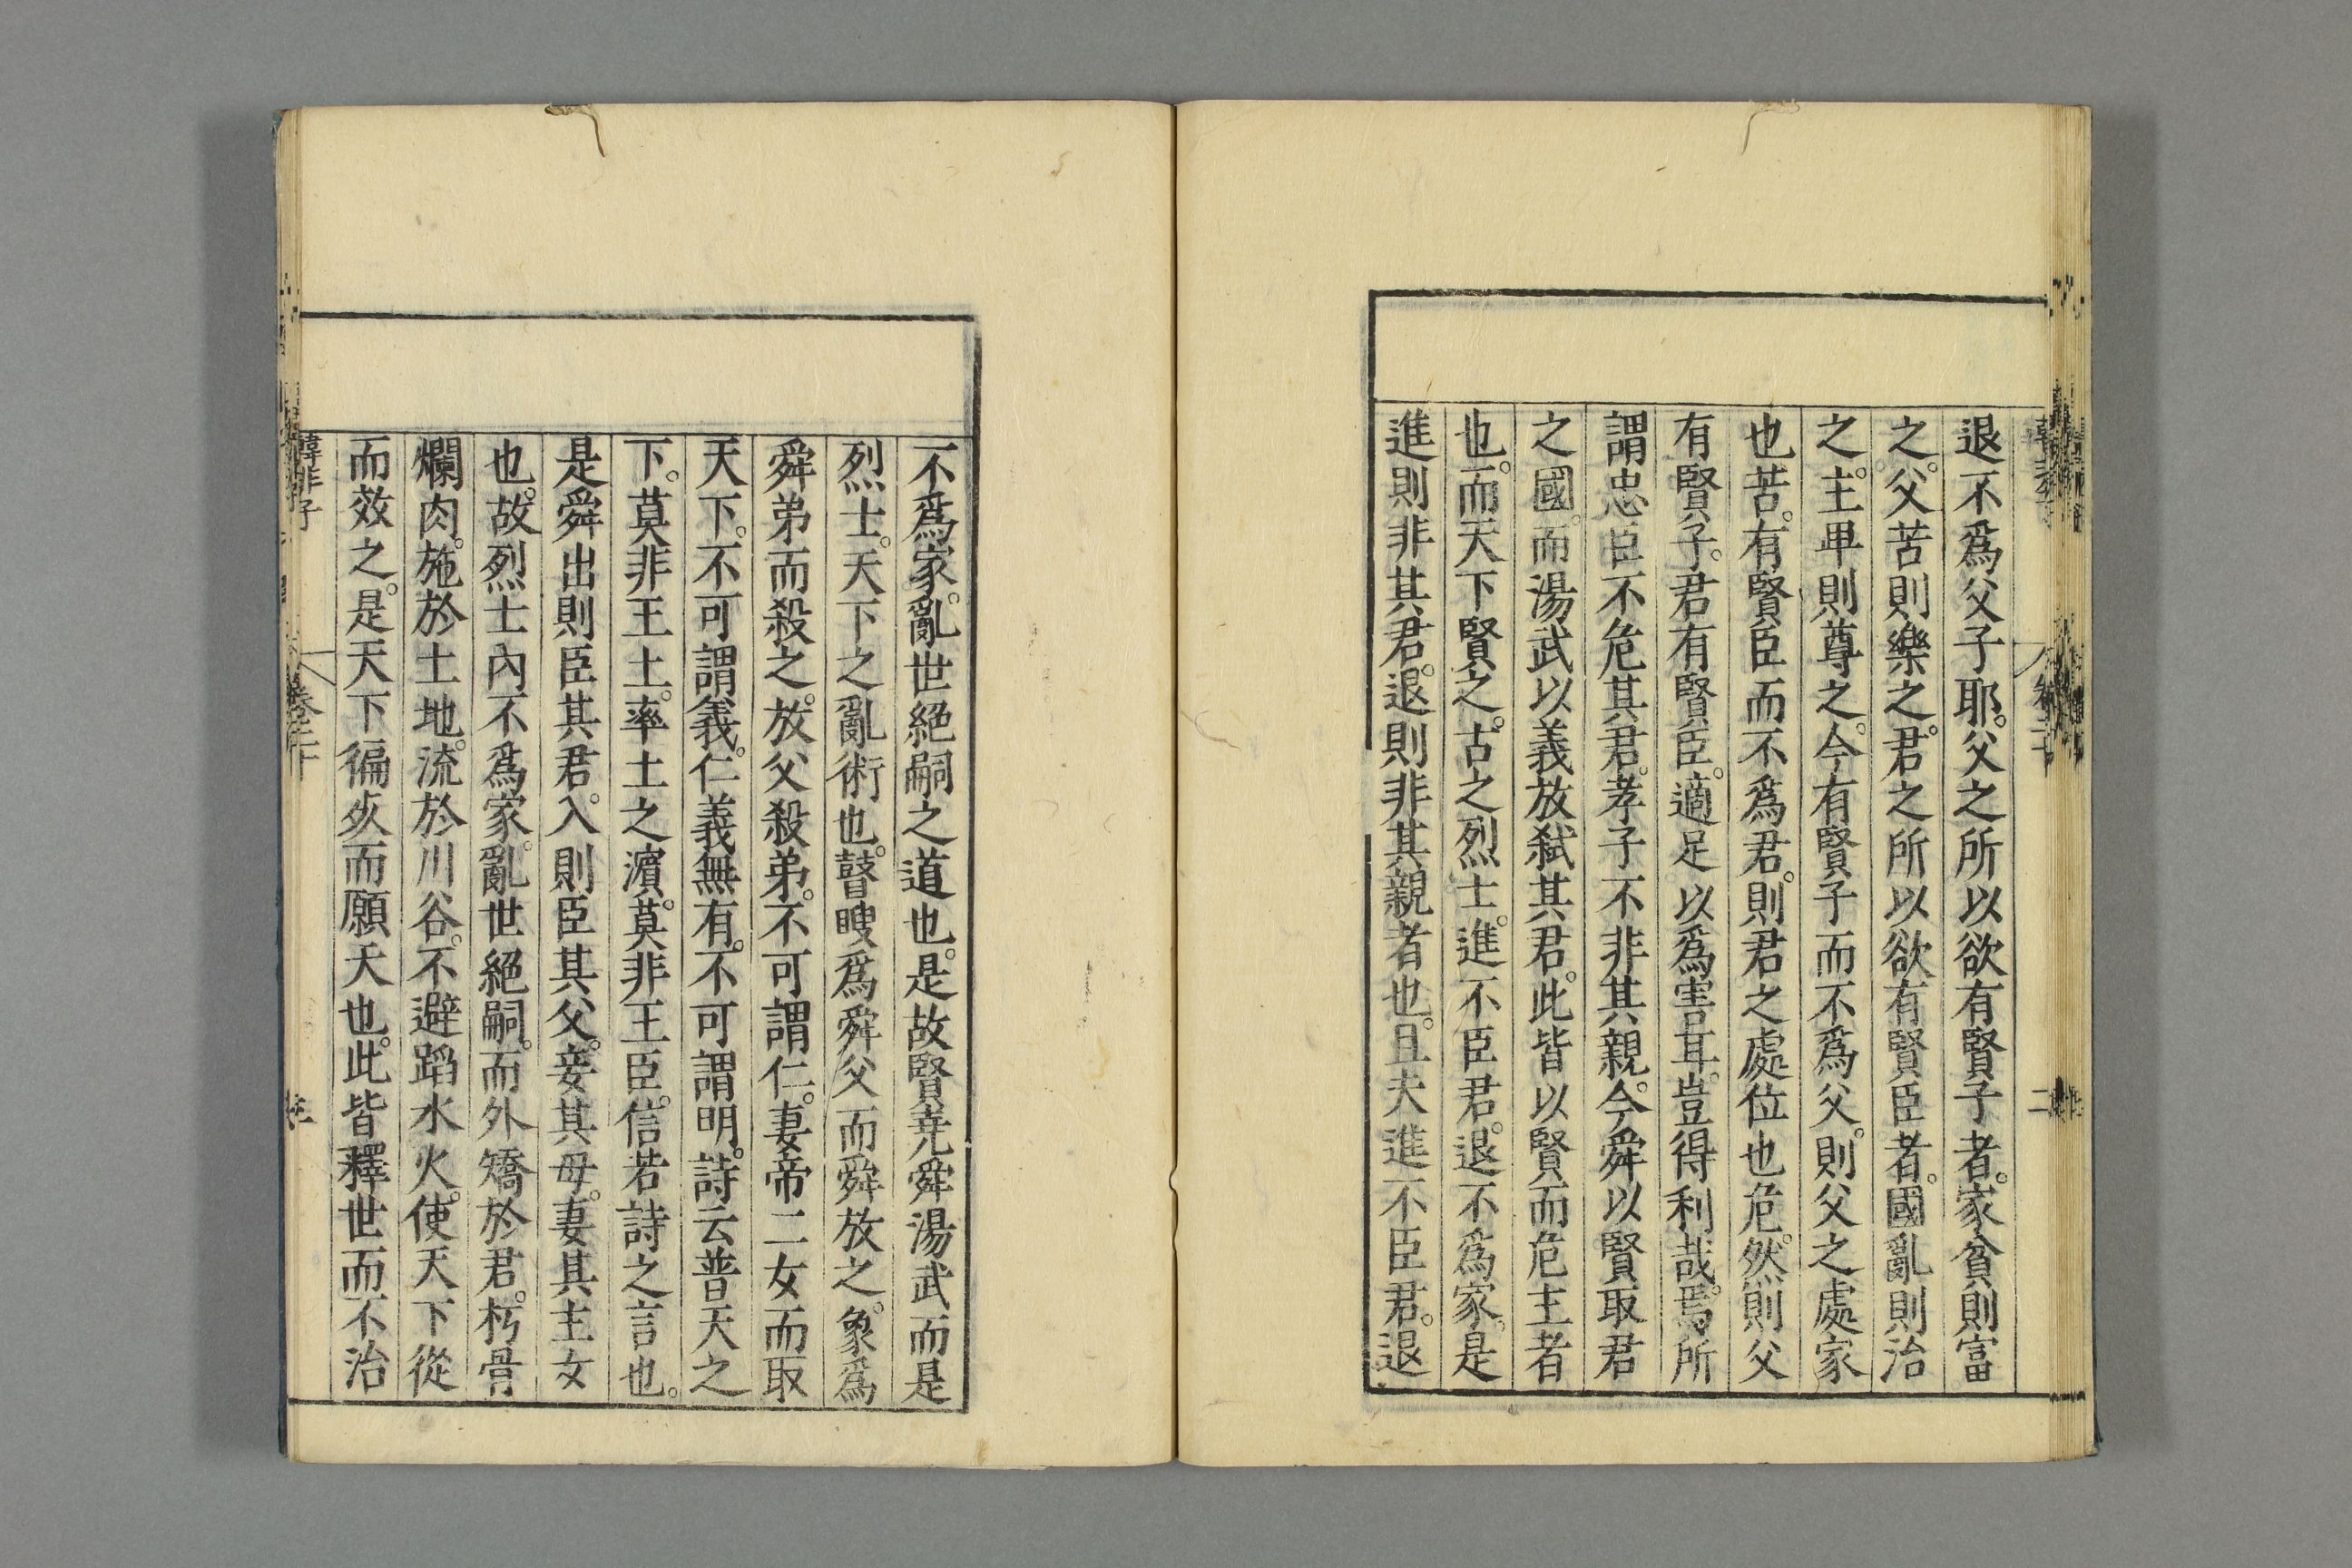 退不爲父子耶。父之所以欲有賢子者。家貧則富
之。父苦則樂之。君之所以欲有賢臣者。國亂則治
之。主卑則尊之。今有賢子而不爲父。則父之處家
也苦。有賢臣而不爲君。則君之處位也危。然則父
有賢子。君有賢臣。適足以爲害耳。豈得利哉。焉所
謂忠臣不危其君。孝子不非其親。今舜以賢取君
之國。而湯武以義放弑其君。此皆以賢而危主者
也。而天下賢之。古之烈士。進不臣君。退不爲家。是
進則非其君。退則非其親者也。且夫進不臣君。退
不爲家。亂世絕嗣之道也。是故賢堯舜湯武而是
烈士。天下之亂術也。瞽瞍爲舜父而舜放之。象爲
舜弟而殺之。放父殺弟。不可謂仁。妻帝二女而取
天下。不可謂義。仁義無有。不可謂明。詩云普天之
下。莫非王土。率土之濱。莫非王臣。信若詩之言也。
是舜出則臣其君。入則臣其父。妾其母。妻其主女
也。故烈士內不爲家。亂世絕嗣。而外矯於君。朽骨
爛肉。施於土地。流於川谷。不避蹈水火。使天下從
而效之。是天下徧死而願夭也。此皆釋世而不治
韓非子 卷二十